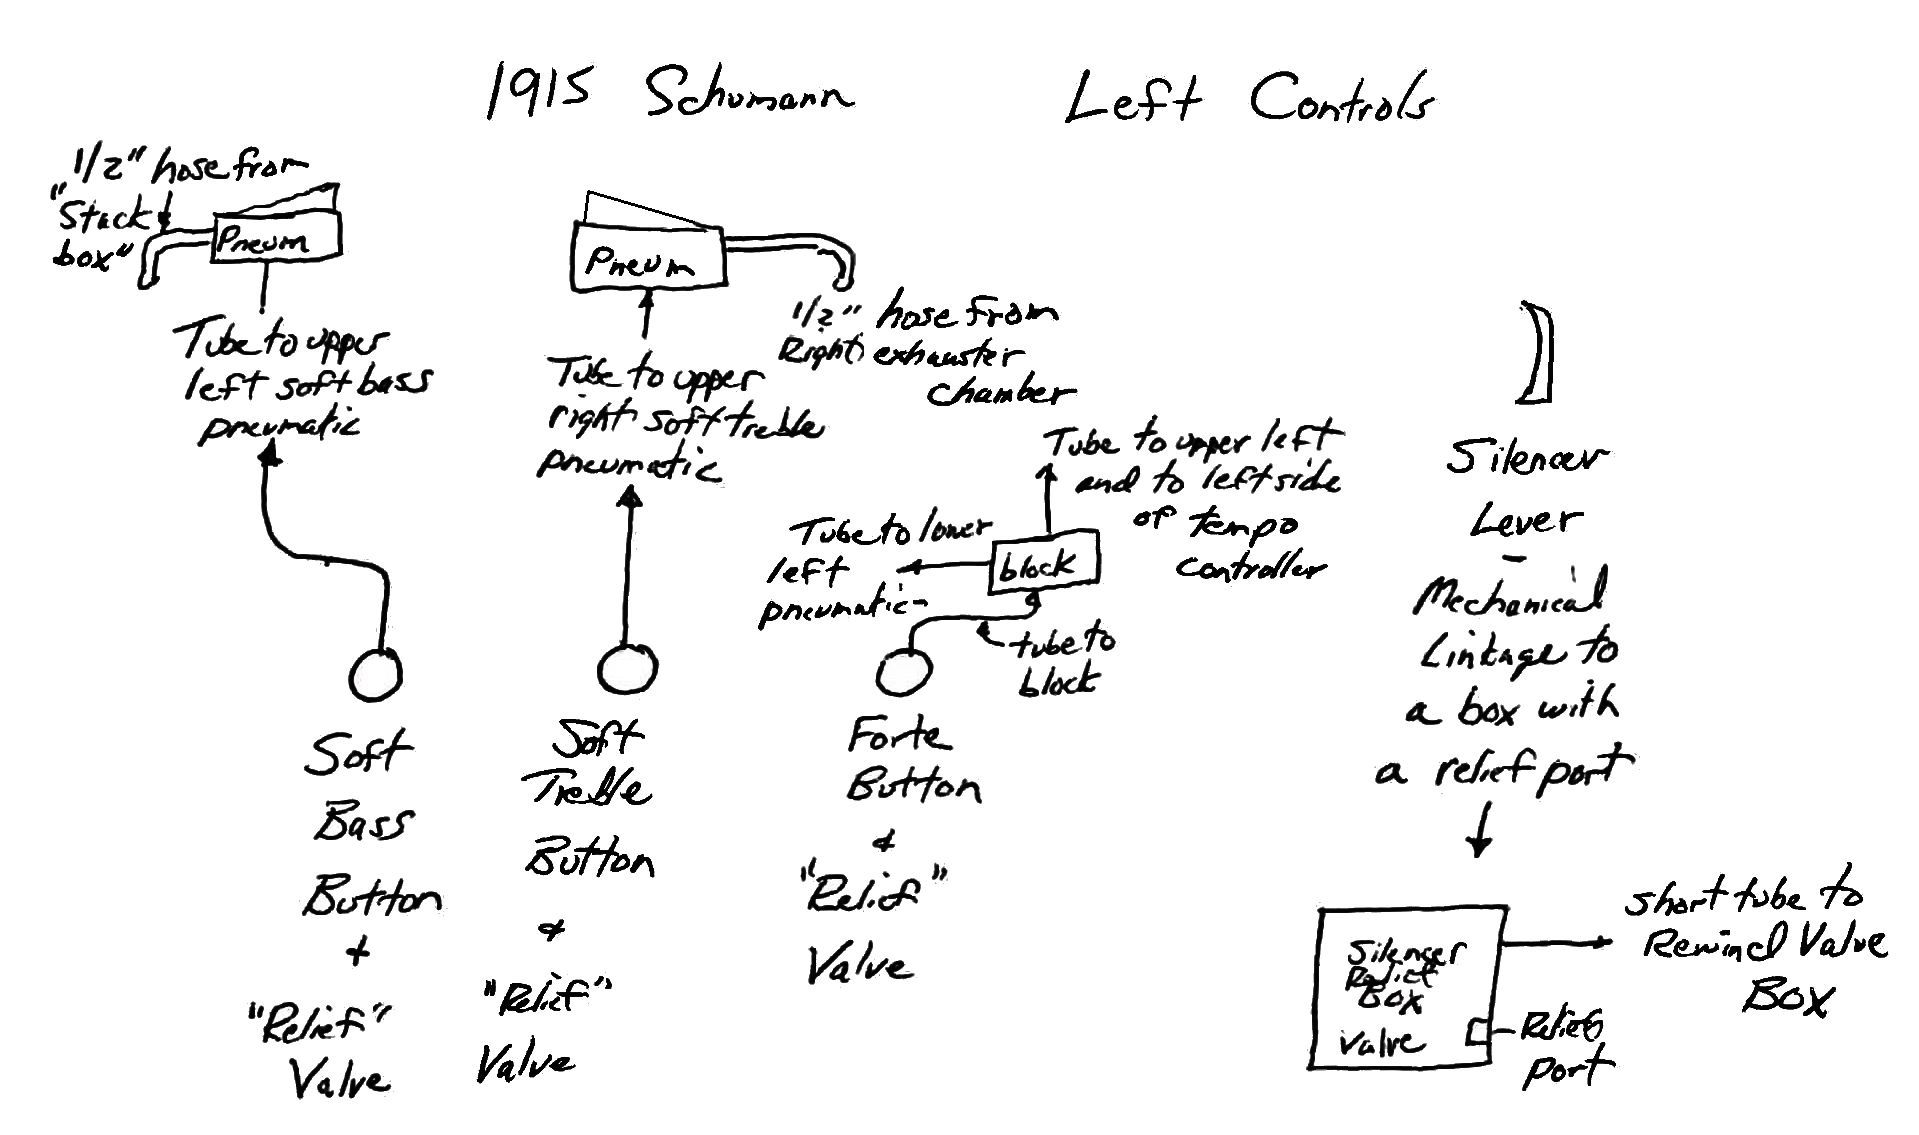 1915 Schumann Left Controls
1/2" hose from
"Stack
box"
Pneum
Tube to upper
left soft bass
pneumatic
Soft
Bass
Button
+
"Relief"
Valve
Pneum
1/2" hose from
Right exhauster
chamber
Tube to upper
right soft treble
pneumatic
Soft
Treble
Button
&
"Relief"
Valve
Tube to upper left
and to left side
of tempo
controller
Tube to lower
left
pneumatic
block
tube to
block
Forte
Button
&
"Relief"
Valve
Silencer
Lever
-
Mechanical
Linkage to
a box with
a relief port
Silencer
Relief
Box
Valve
short tube to
Rewind Valve
Box
Relief
port